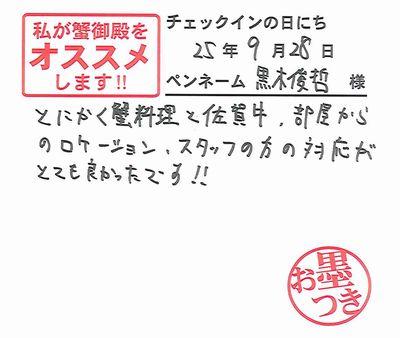 私が蟹御殿を
オススメ
します!!
チェックインの日にち
25年9月28日
ペンネーム 黒木俊哲 様
とにかく蟹料理と佐賀牛、部屋から
のロケーション、スタッフの方の対応が
とても良かったです!!
お墨つき